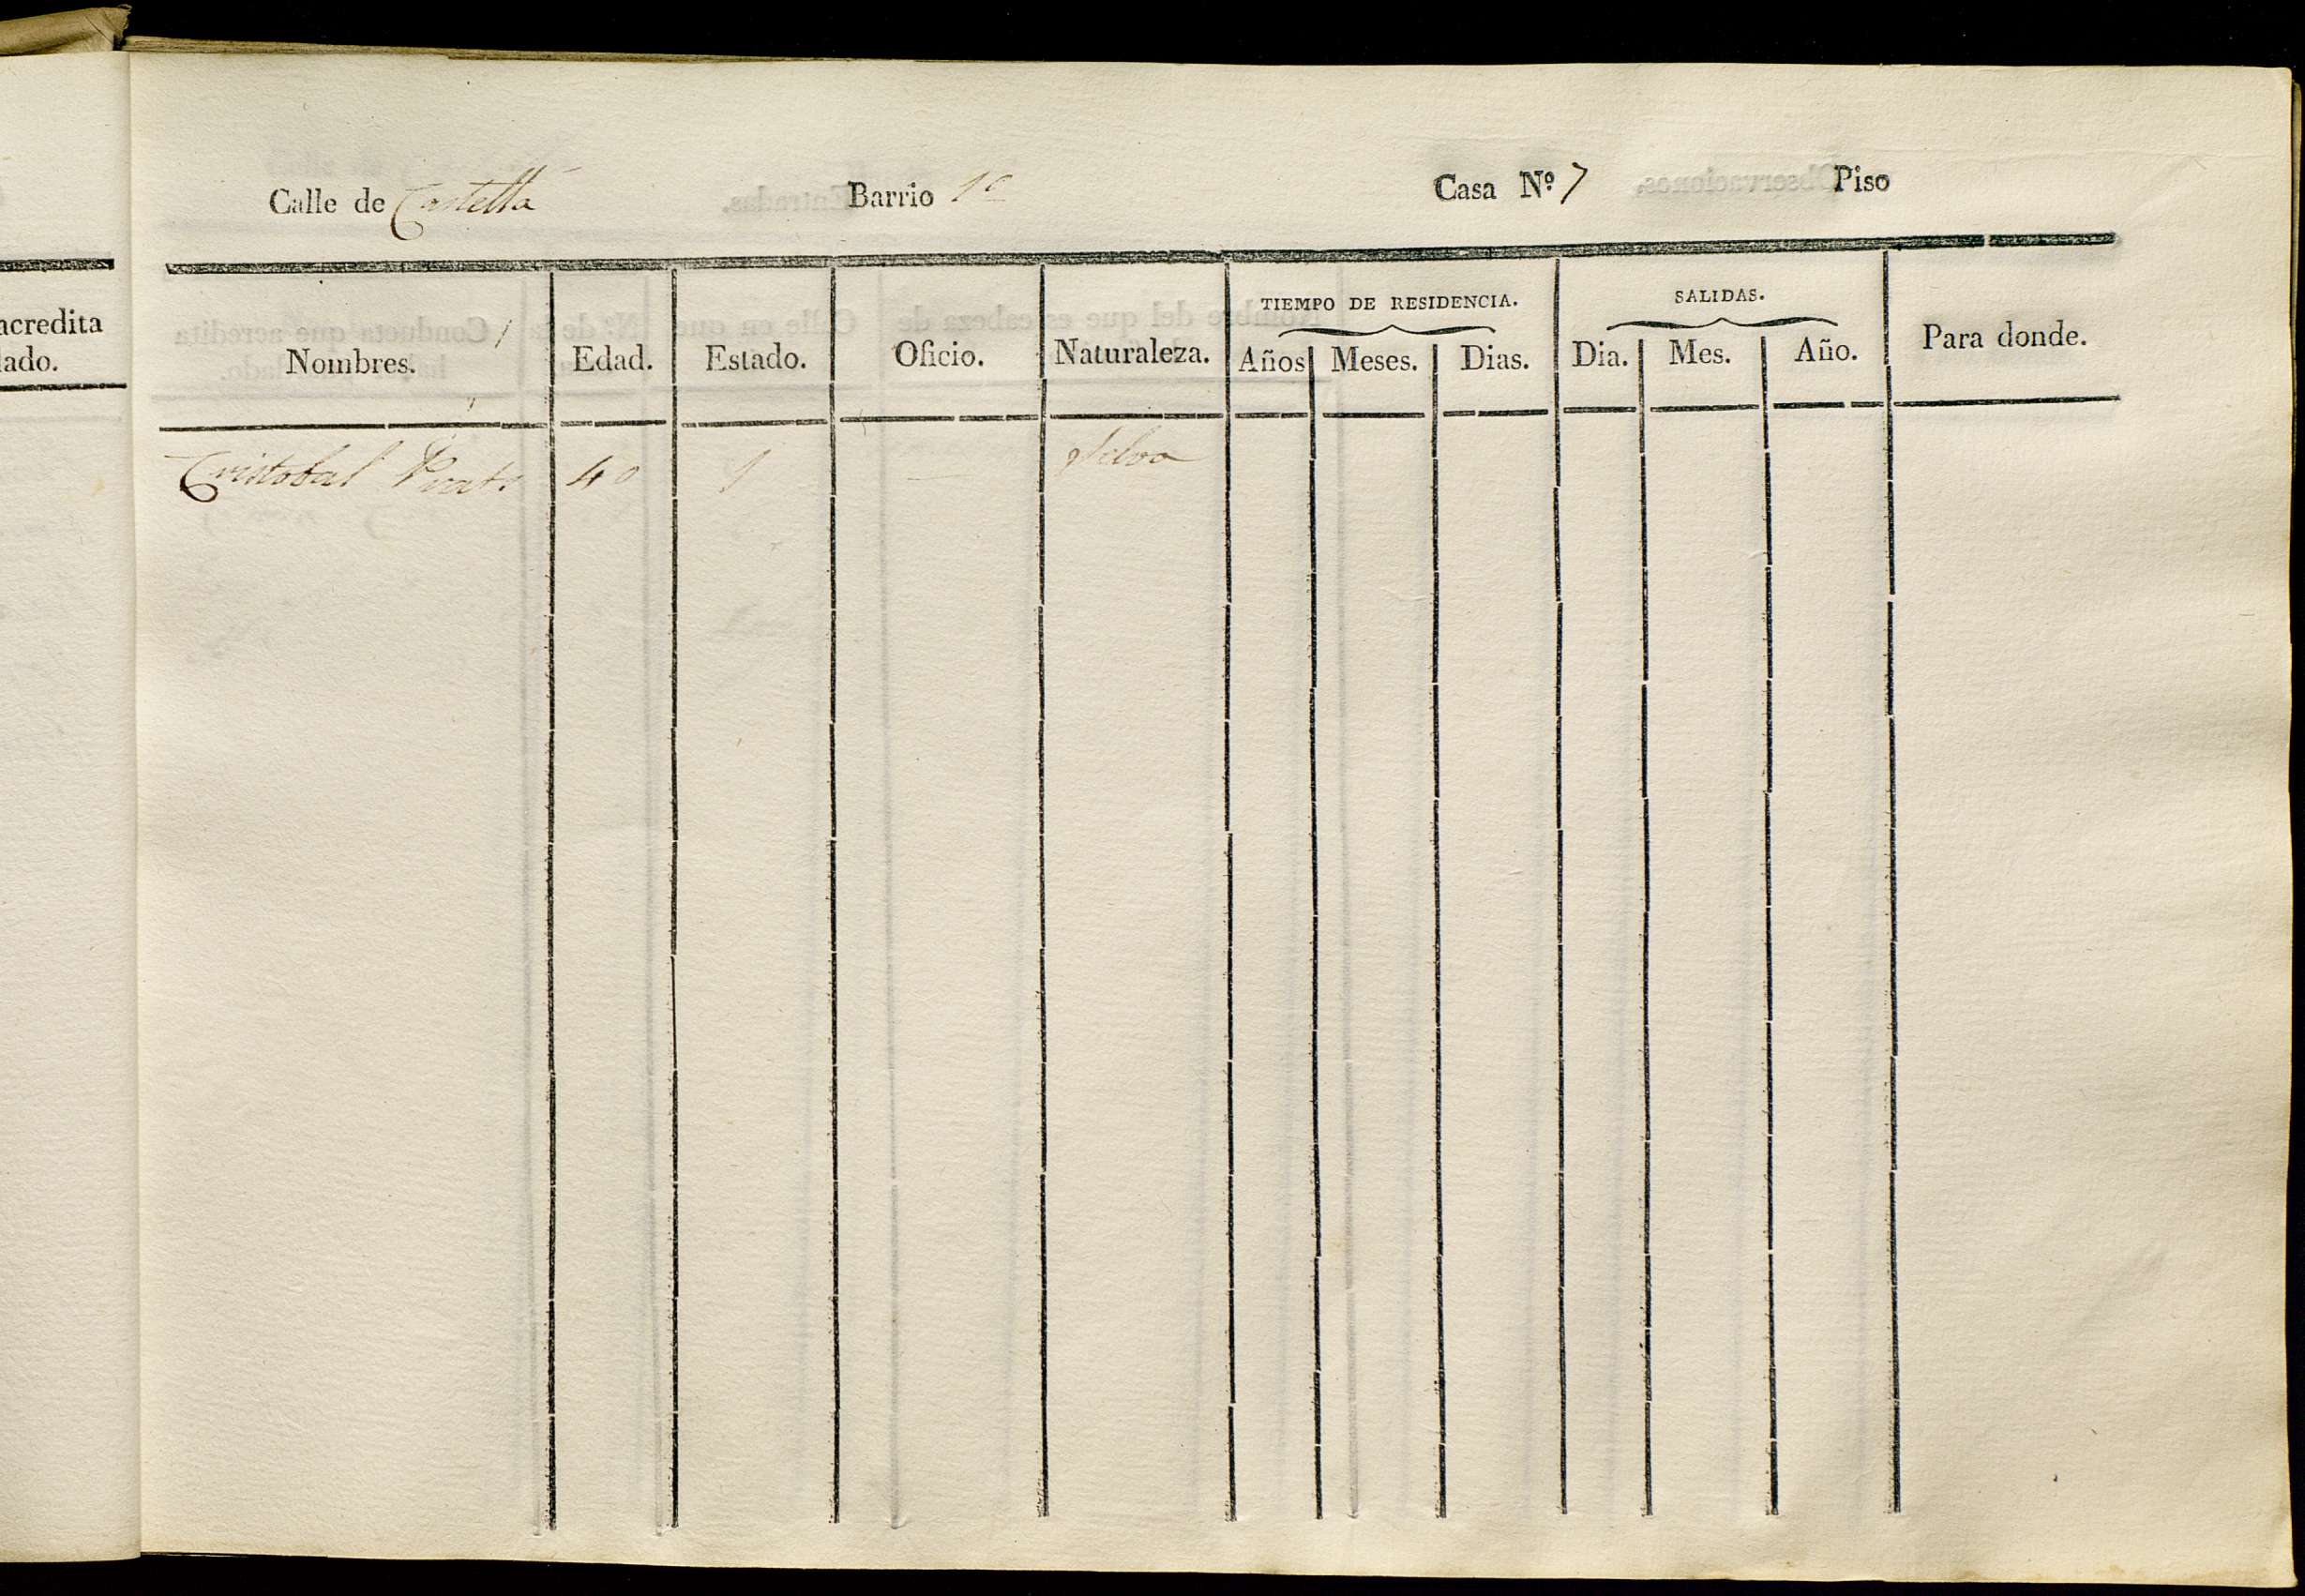 acredita
lado.
Calle de Castellá Barrio 1º Casa Nº 7 Piso
Nombres. Edad. Estado. Oficio. Naturaleza. TIEMPO DE RESIDENCIA. SALIDAS. Para donde.
Años Meses. Dias. Dia. Mes. Año.
Cristobal Prats 40 Selva